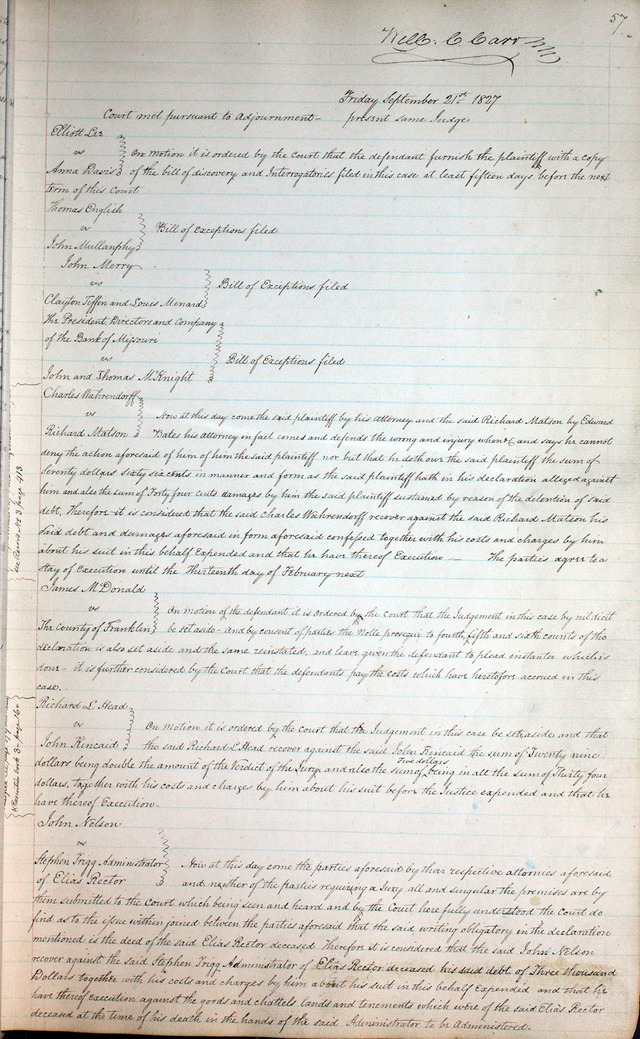 57
Will. C. Carr
Friday September 21st 1827
Court met pursuant to Adjournment— present same Judge
Elliott Lee
vs
On motion it is ordered by the Court that the defendant furnish the plaintiff with a copy
Anna Davis of the bill of discovery and Interrogatories filed in this case at least fifteen days before the next
term of this Court
Thomas English
vs Bill of Exceptions filed
John Mullanphy
John Merry
vs Bill of Exceptions filed
Clayton Tiffin and Louis Menard
The President, Directors and Company
of the Bank of Missouri
vs Bill of Exceptions filed
John and Thomas McKnight
Charles Wahrendorff
vs Now at this day come the said plaintiff by his attorney and the said Richard Matson by Edward
Richard Matson Bates his attorney in fact comes and defends the wrong and injury when &c and says he cannot
deny the action aforesaid of him of him the said plaintiff nor but that he doth owe the said plaintiff the sum of
Seventy dollars sixty six cents in manner and form as the said plaintiff hath in his declaration alleged against
him and also the sum of Forty four cents damages by him the said plaintiff sustained by reason of the detention of said
debt, Therefore it is considered that the said Charles Wahrendorff recover against the said Richard Matson his
said debt and damages aforesaid in form aforesaid confessed together with his costs and charges by him
about his suit in this behalf Expended and that he have thereof Execution — The parties agree to a
stay of Execution until the Thirteenth day of February next
James McDonald
vs On motion of the defendant it is ordered by the Court that the Judgement in this case by nil dicit
The County of Franklin be set aside - and by consent of parties the Nolle prosequi to fourth, fifth and sixth counts of the
declaration is also set aside and the same reinstated, and leave given the defendant to plead instanter which is
done - it is further considered by the Court that the defendants pay the costs which have heretofore accrued in this
case.
Richard L. Head
vs On motion it is ordered by the court that the Judgement in this case be set aside and that
John Kincaid the said Richard L Head recover against the said John Kincaid the sum of Twenty nine
dollars being double the amount of the Verdict of the Jury and also the sum of Five dollars being in all the sum of Thirty four
dollars, together with his costs and charges by him about his suit before the Justice expended and that he
have thereof Execution.
John Nelson
vs
Stephen Trigg Administrator Now at this day come the parties aforesaid by their respective attornies aforesaid
of Elias Rector and neither of the parties requiring a Jury all and singular the premises are by
them submitted to the Court which being seen and heard and by the Court here fully understood the Court do
find as to the issue within joined between the parties aforesaid that the said writing obligatory in the declaration
mentioned is the deed of the said Elias Rector deceased Therefore it is considered that the said John Nelson
recover against the said Stephen Trigg Administrator of Elias Rector deceased his said debt of Three thousand
Dollars together with his costs and charges by him about his suit in this behalf Expended and that he
have thereof execution against the goods and chattels lands and tenements which were of the said Elias Rector
deceased at the time of his death in the hands of the said Administrator to be Administered.